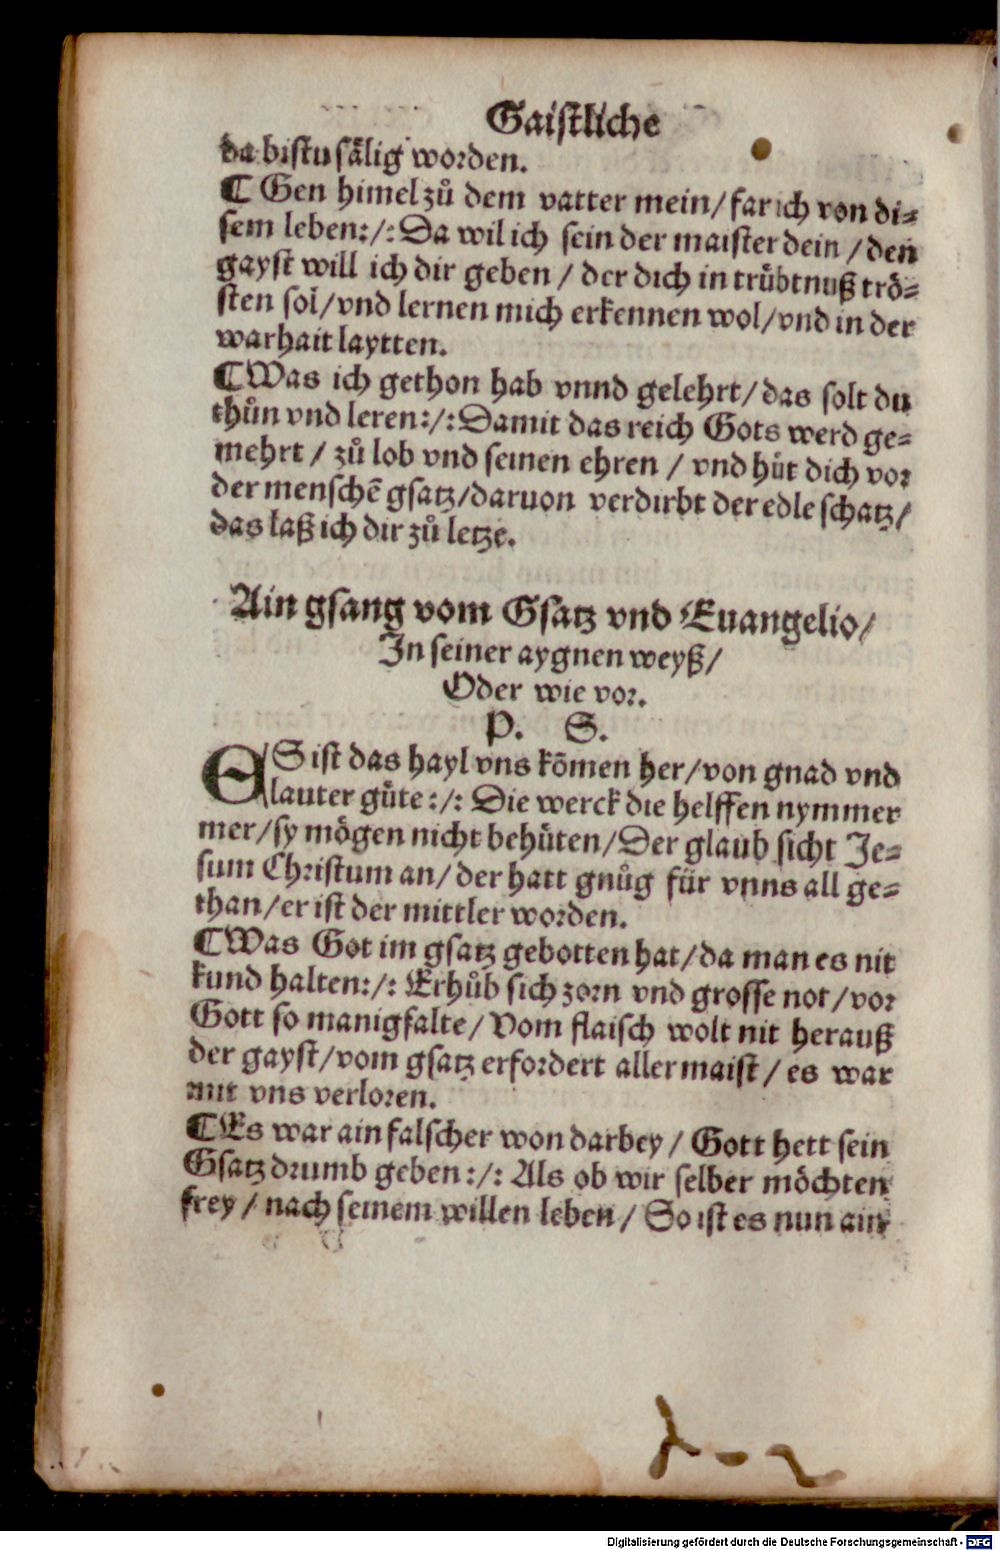 Gaistliche
da bistu sälig worden.
¶ Gen himel zů dem vatter mein/ far ich von di⸗
sem leben:/: Da wil ich sein der maister dein / den
gayst will ich dir geben / der dich in trůbtnuß trö⸗
sten sol/ vnd lernen mich erkennen wol/ vnd in der
warhait laytten.
¶ Was ich gethon hab vnnd gelehrt/ das solt du
thůn vnd leren:/: Damit das reich Gots werd ge⸗
mehrt / zů lob vnd seinen ehren / vnd hüt dich vor
der menschē gsatz/ daruon verdirbt der edle schatz/
das laß ich dir zů letze.
Ain gsang vom Gsatz vnd Euangelio/
In seiner aygnen weyß/
Oder wie vor.
P. S.
ES ist das hayl vns kōmen her/ von gnad vnd
lauter gůte:/: Die werck die helffen nymmer
mer/ sy mögen nicht behüten/ Der glaub sicht Je⸗
sum Christum an/ der hatt gnůg für vnns all ge⸗
than/ er ist der mittler worden.
¶ Was Got im gsatz gebotten hat/ da man es nit
kund halten:/: Erhůb sich zorn vnd grosse not/ vor
Gott so manigfalte/ Vom flaisch wolt nit herauß
der gayst/ vom gsatz erfordert allermaist/ es war
mit vns verloren.
¶ Es war ain falscher won darbey / Gott hett sein
Gsatz drumb geben:/: Als ob wir selber möchten
frey / nach seinem willen leben / So ist es nun ain
Digitalisierung gefördert durch die Deutsche Forschungsgemeinschaft - DFG